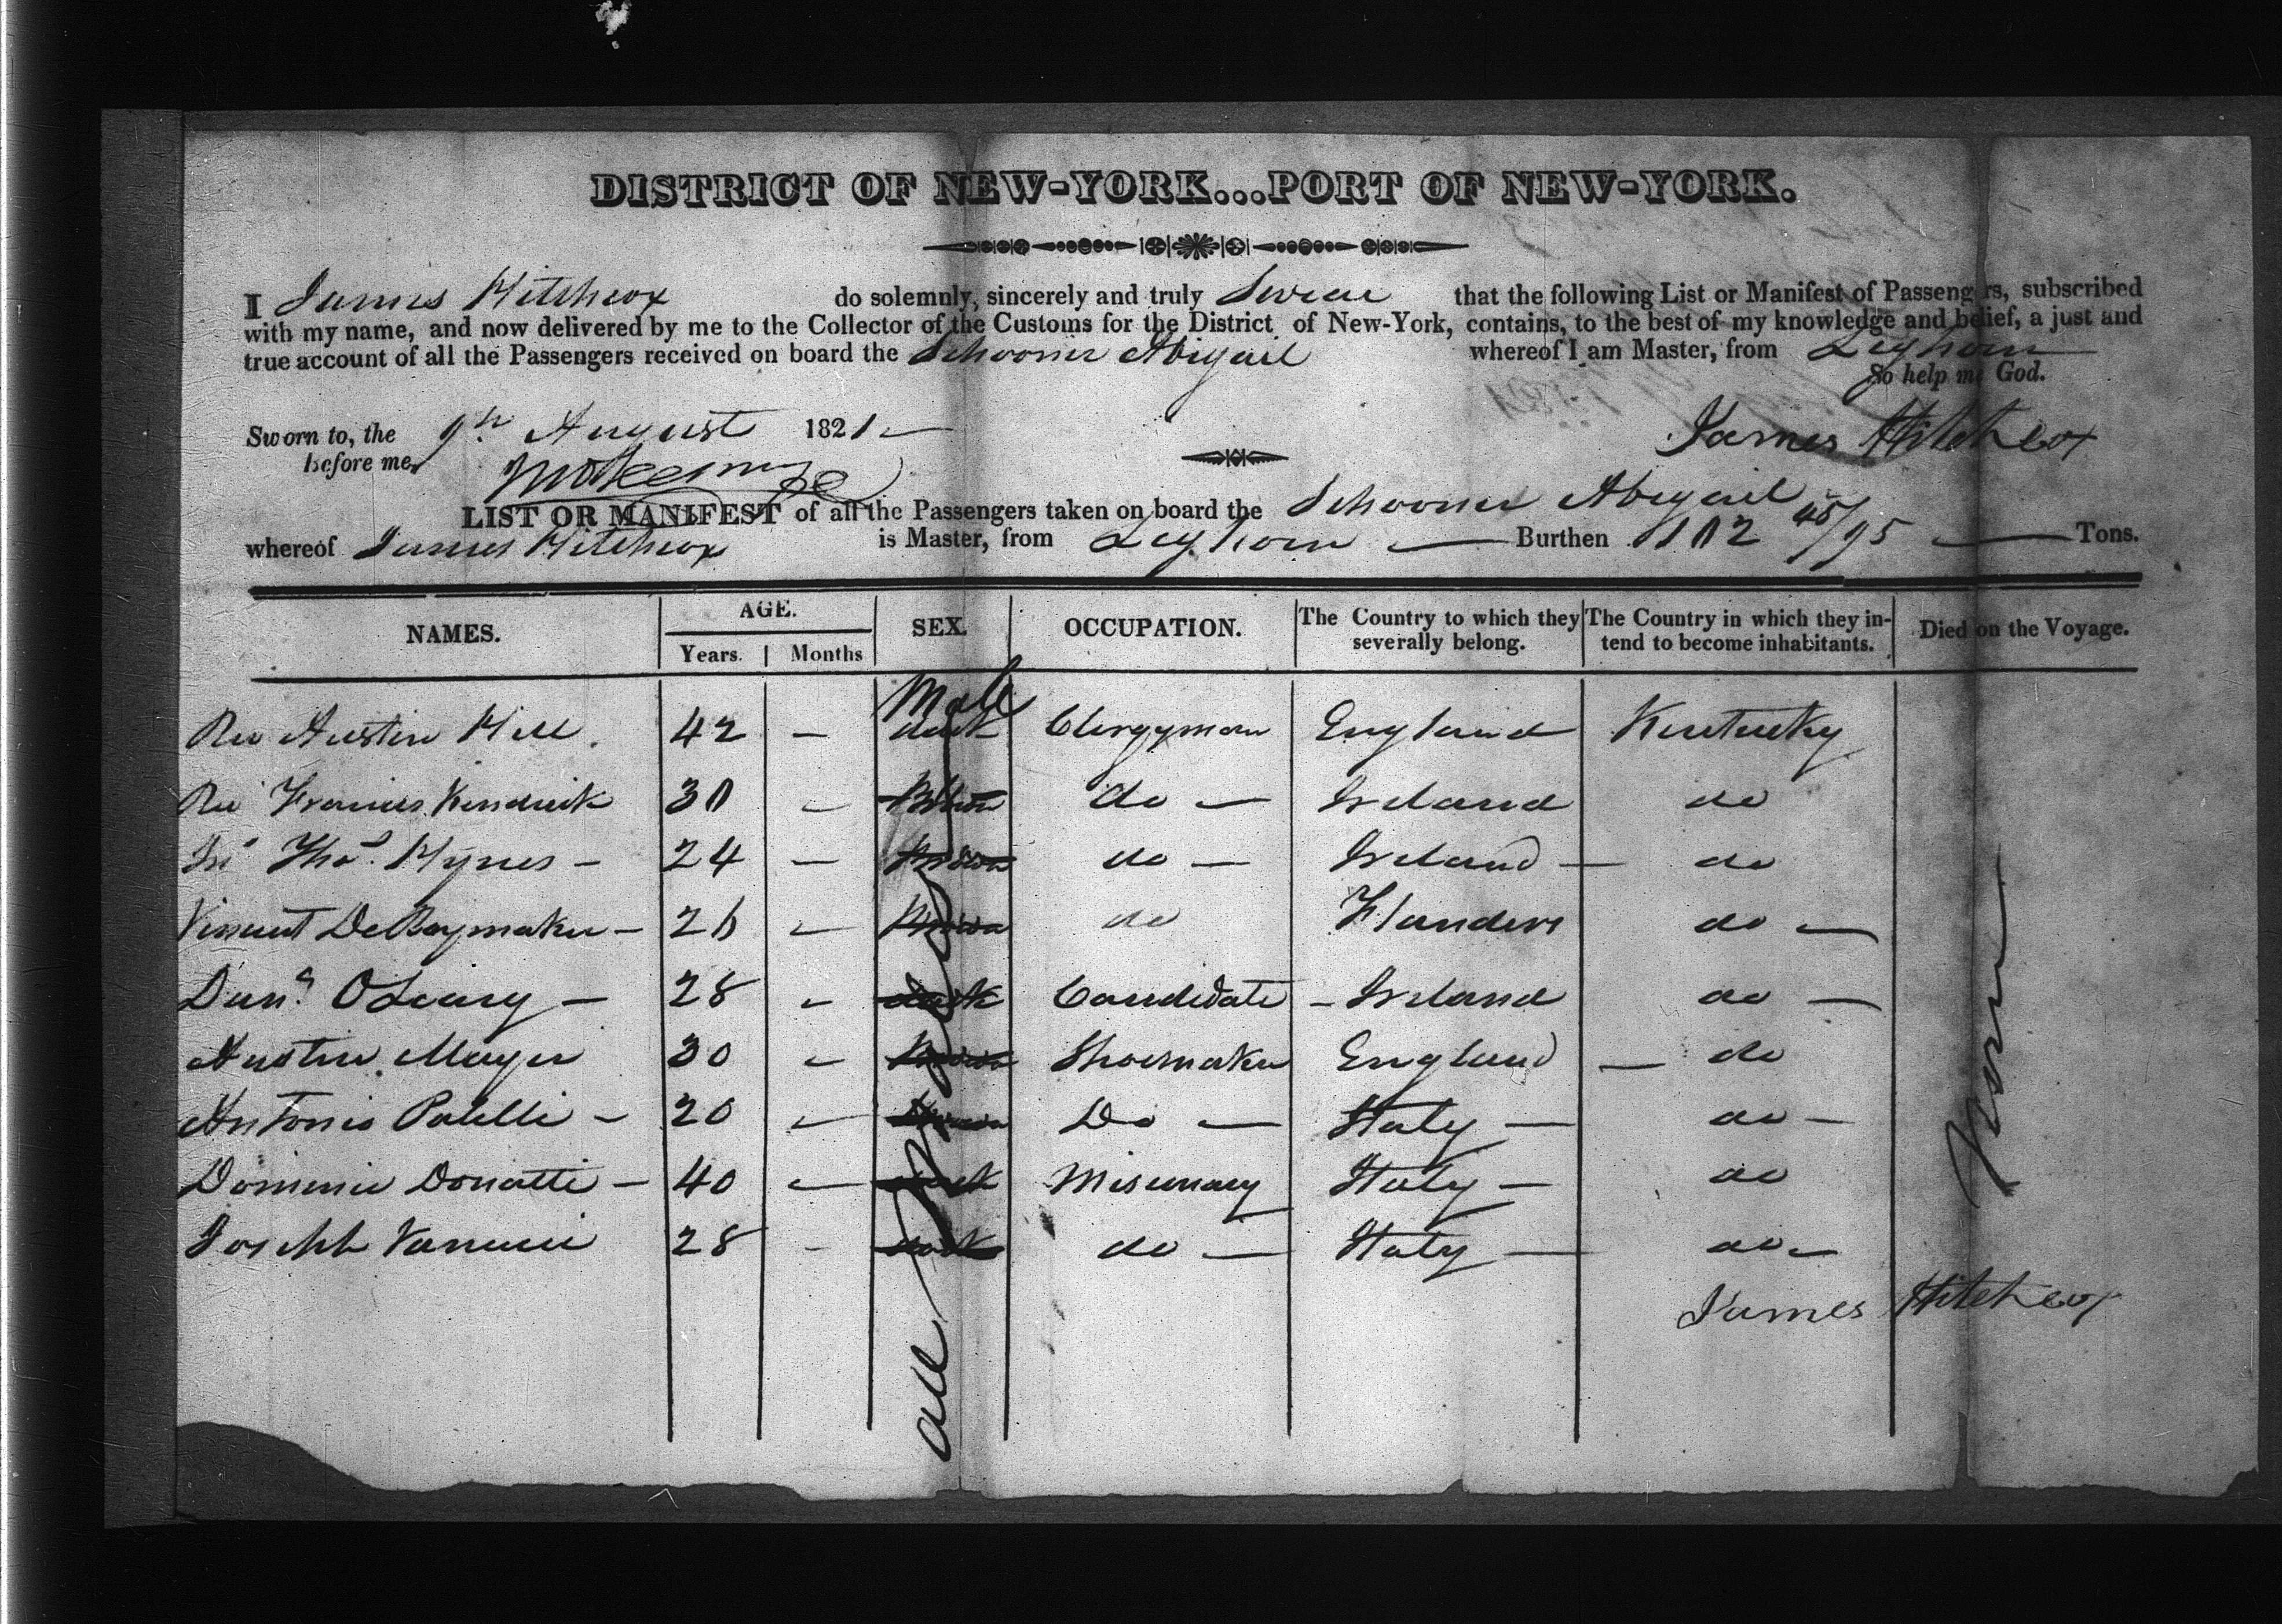 DISTRICT OF NEW-YORK...PORT OF NEW-YORK.
I James Hitchcox do solemnly, sincerely and truly Swear that the following List or Manifest of Passengers, subscribed
with my name, and now delivered by me to the Collector of the Customs for the District of New-York, contains, to the best of my knowledge and belief, a just and
true account of all the Passengers received on board the Schooner Abigail whereof I am Master, from Leghorn
So help me God.
Sworn to, the 9th August 1821
before me,
James Hitchcox
LIST OR MANIFEST of all the Passengers taken on board the Schooner Abigail
whereof James Hitchcox is Master, from Leghorn Burthen 102 45/95 Tons.
NAMES. AGE. SEX. OCCUPATION. The Country to which they severally belong. The Country in which they intend to become inhabitants. Died on the Voyage.
Years. Months
Male
Rev Austin Hill. 42 - dark Clergyman England Kentucky
Rev Francis Kendrick 30 - Brown do - Ireland do
Thos. Hynes - 24 - Brown do - Ireland - do
Vincent DeRaymaker - 26 - Brown do Flanders do -
O Leary - 28 - dark Candidate - Ireland do -
Austin Mayer 30 - Brown Shoemaker England - do
Antonio Polelli - 20 - Brown Do - Italy - do -
Dominic Donatti - 40 - dark Misionary Italy - do
Joseph Vanucci 28 - dark do - Italy - do -
all
None
James Hitchcox